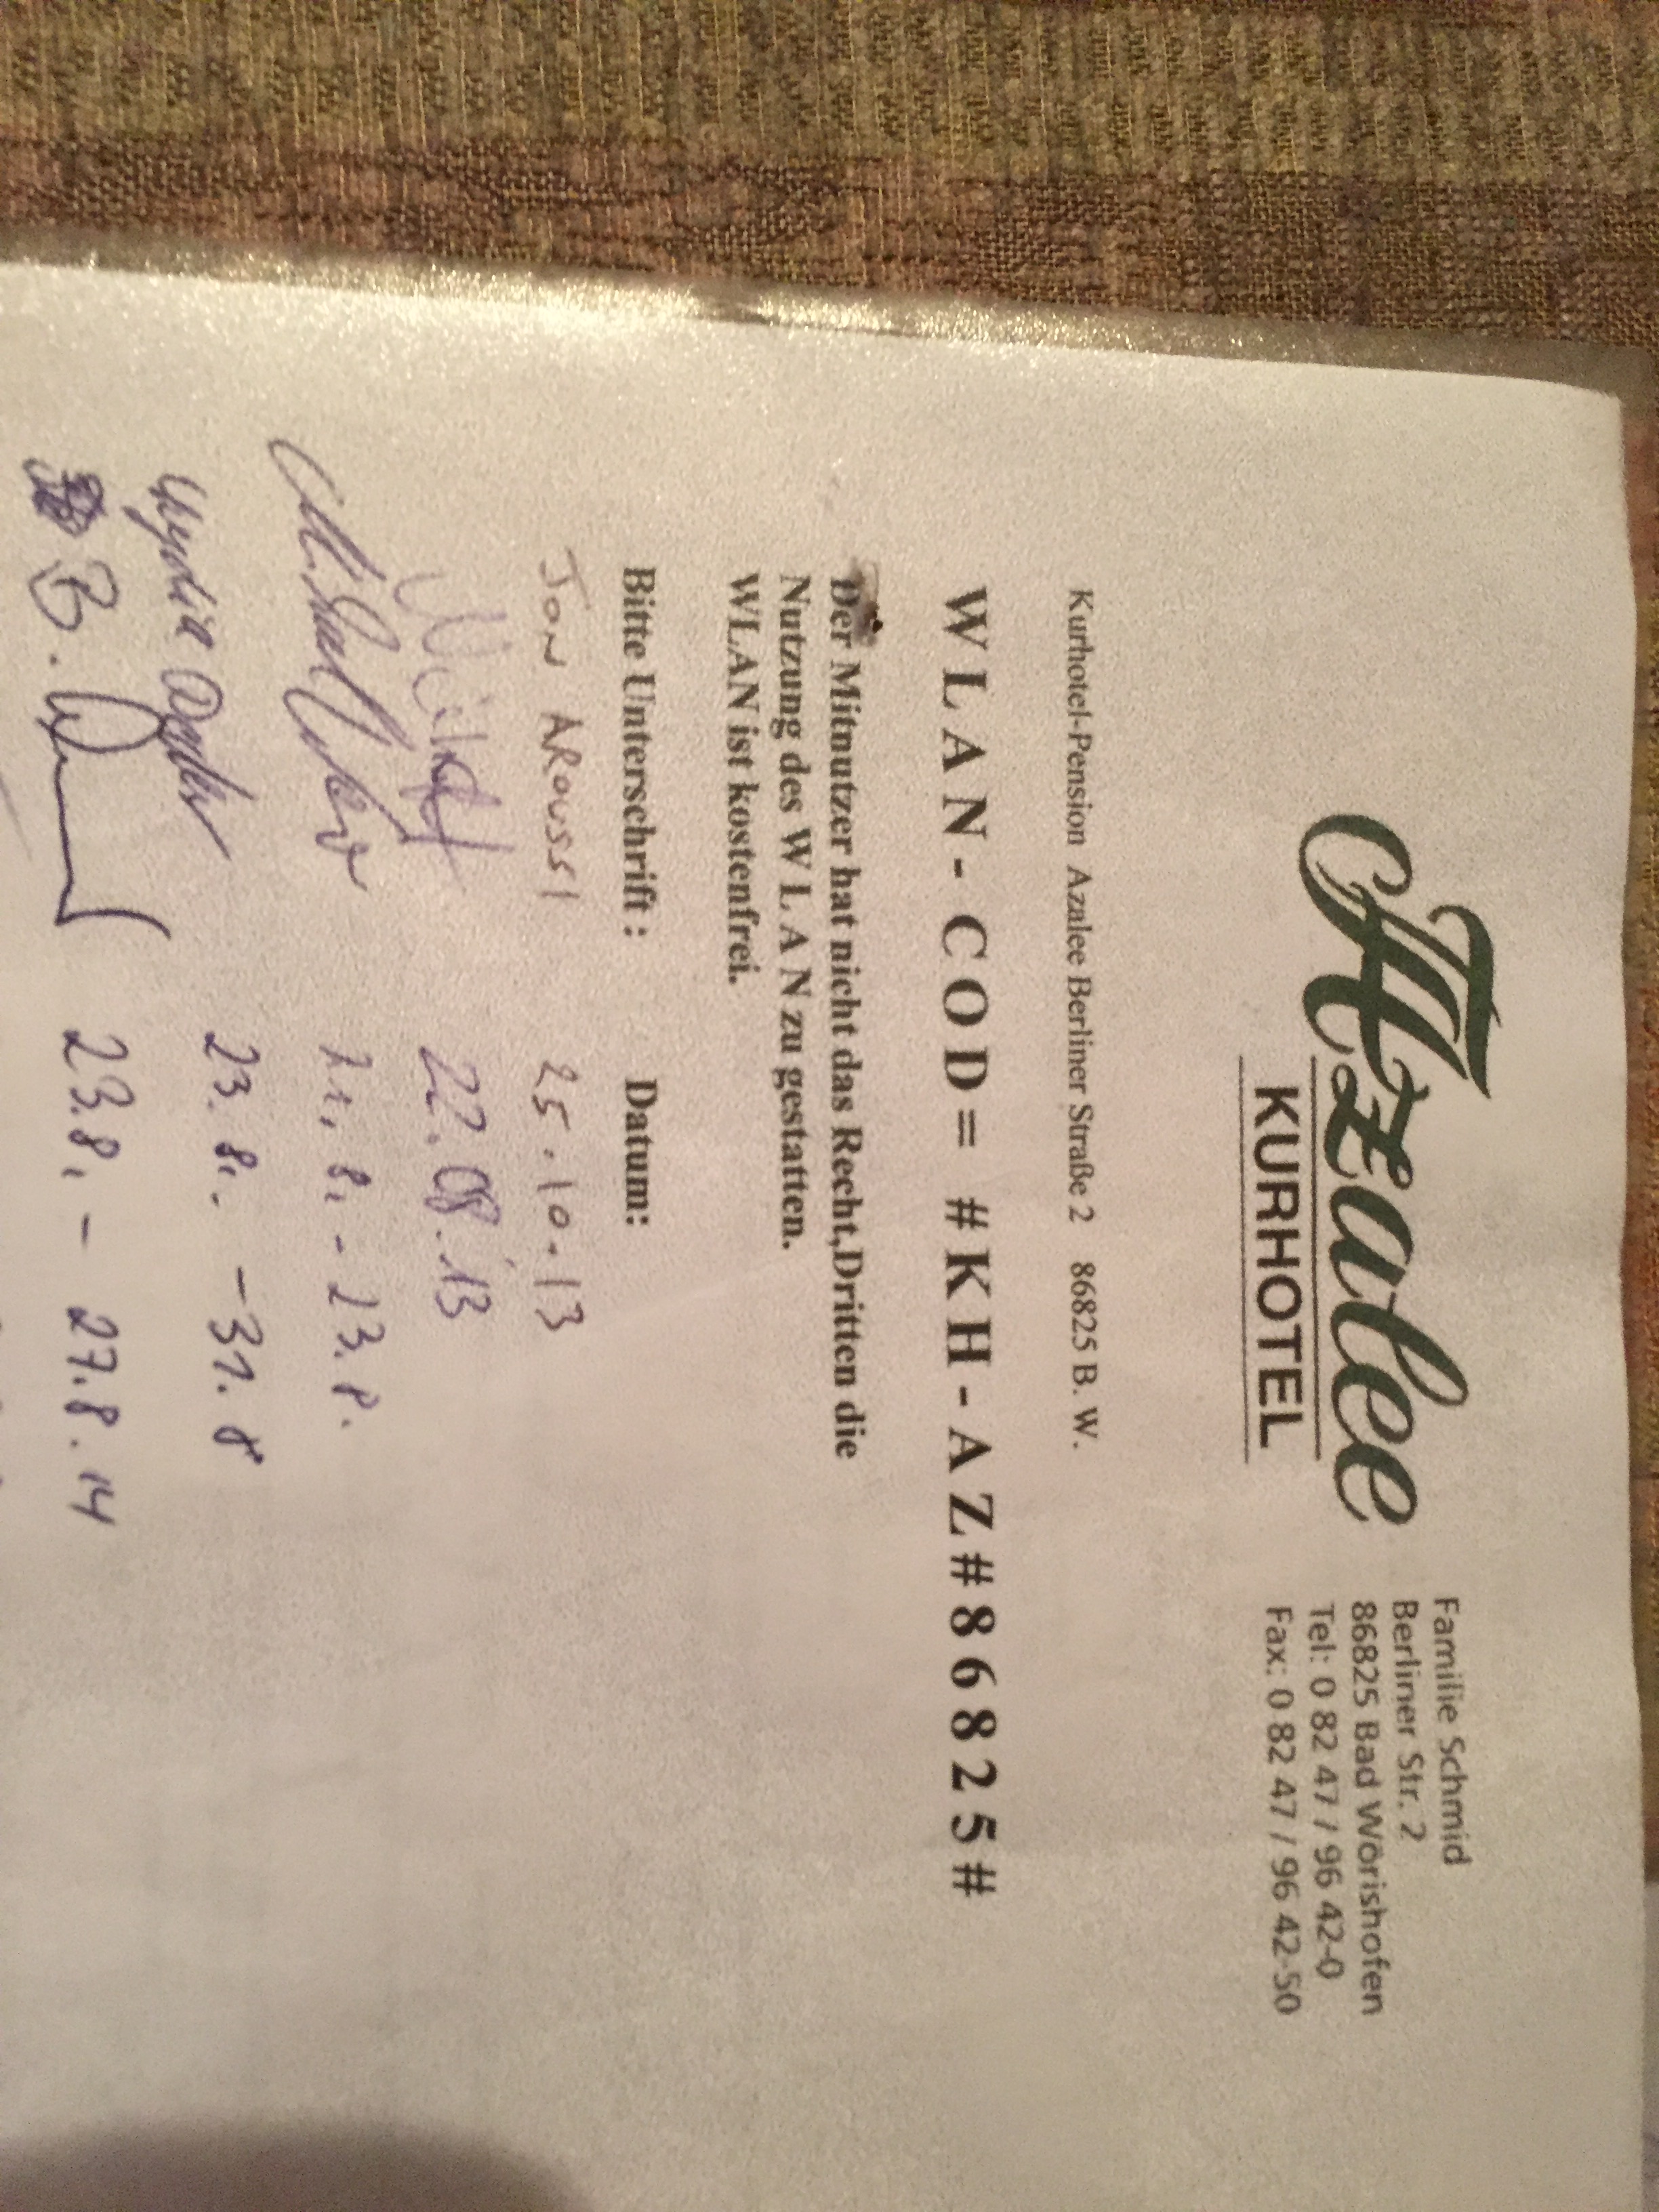 Azalee
KURHOTEL
Familie Schmid
Berliner Str. 2
86825 Bad Wörishofen
Tel: 0 82 47 / 96 42-0
Fax: 0 82 47 / 96 42-50
Kurhotel-Pension Azalee Berliner Straße 2 86825 B. W.
W L A N - C O D = # K H - A Z # 8 6 8 2 5 #
Der Mitnutzer hat nicht das Recht,Dritten die
Nutzung des W L A N zu gestatten.
WLAN ist kostenfrei.
Bitte Unterschrift : Datum:
JON AROUSSI 25.10.13
22.08.13
21.8. - 23.8.
23.8. - 31.8
B. 23.8. - 27.8.14